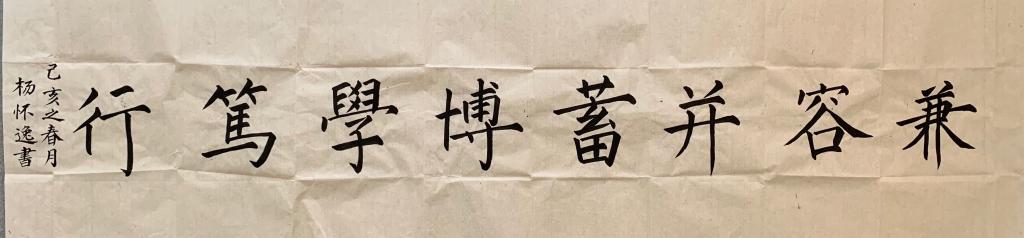 兼容并蓄博學篤行
己亥之春月
杨怀逸書